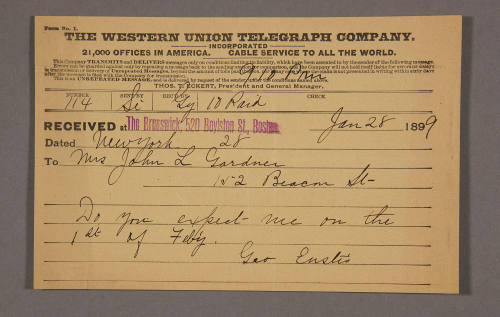 Form No. 1.
THE WESTERN UNION TELEGRAPH COMPANY.
INCORPORATED
21,000 OFFICES IN AMERICA. CABLE SERVICE TO ALL THE WORLD.
This Company TRANSMITS and DELIVERS messages only on conditions limiting its liability, which have been assented to by the sender of the following message.
THOS. T. ECKERT, President and General Manager.
NUMBER SENT BY REC'D BY CHECK
714 Si Ly 10 Paid
RECEIVED at The Brunswick 520 Boylston St., Boston. Jan 28 1899
Dated New York 28
To Mrs John L Gardner
152 Beacon St-
Do you expect me on the
1st of Feby.
Geo Eustis